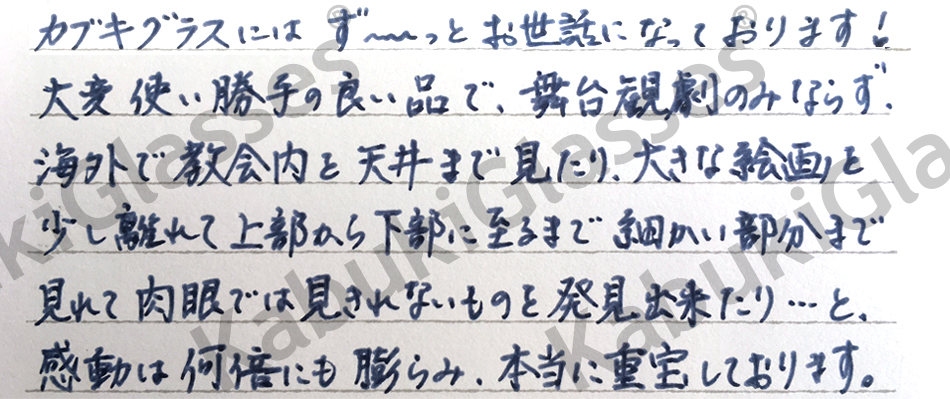 カブキグラスにはず〜〜っとお世話になっております!
大変使い勝手の良い品で、舞台観劇のみならず、
海外で教会内を天井まで見たり、大きな絵画を
少し離れて上部から下部に至るまで細かい部分まで
見れて肉眼では見きれないものを発見出来たり…と、
感動は何倍にも膨らみ、本当に重宝しております。
KabukiGlasses®
KabukiGlasses®
KabukiGla